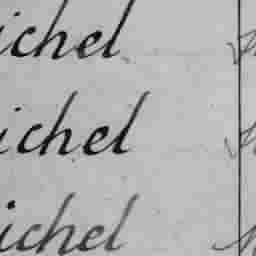 ichel
ichel
ichel